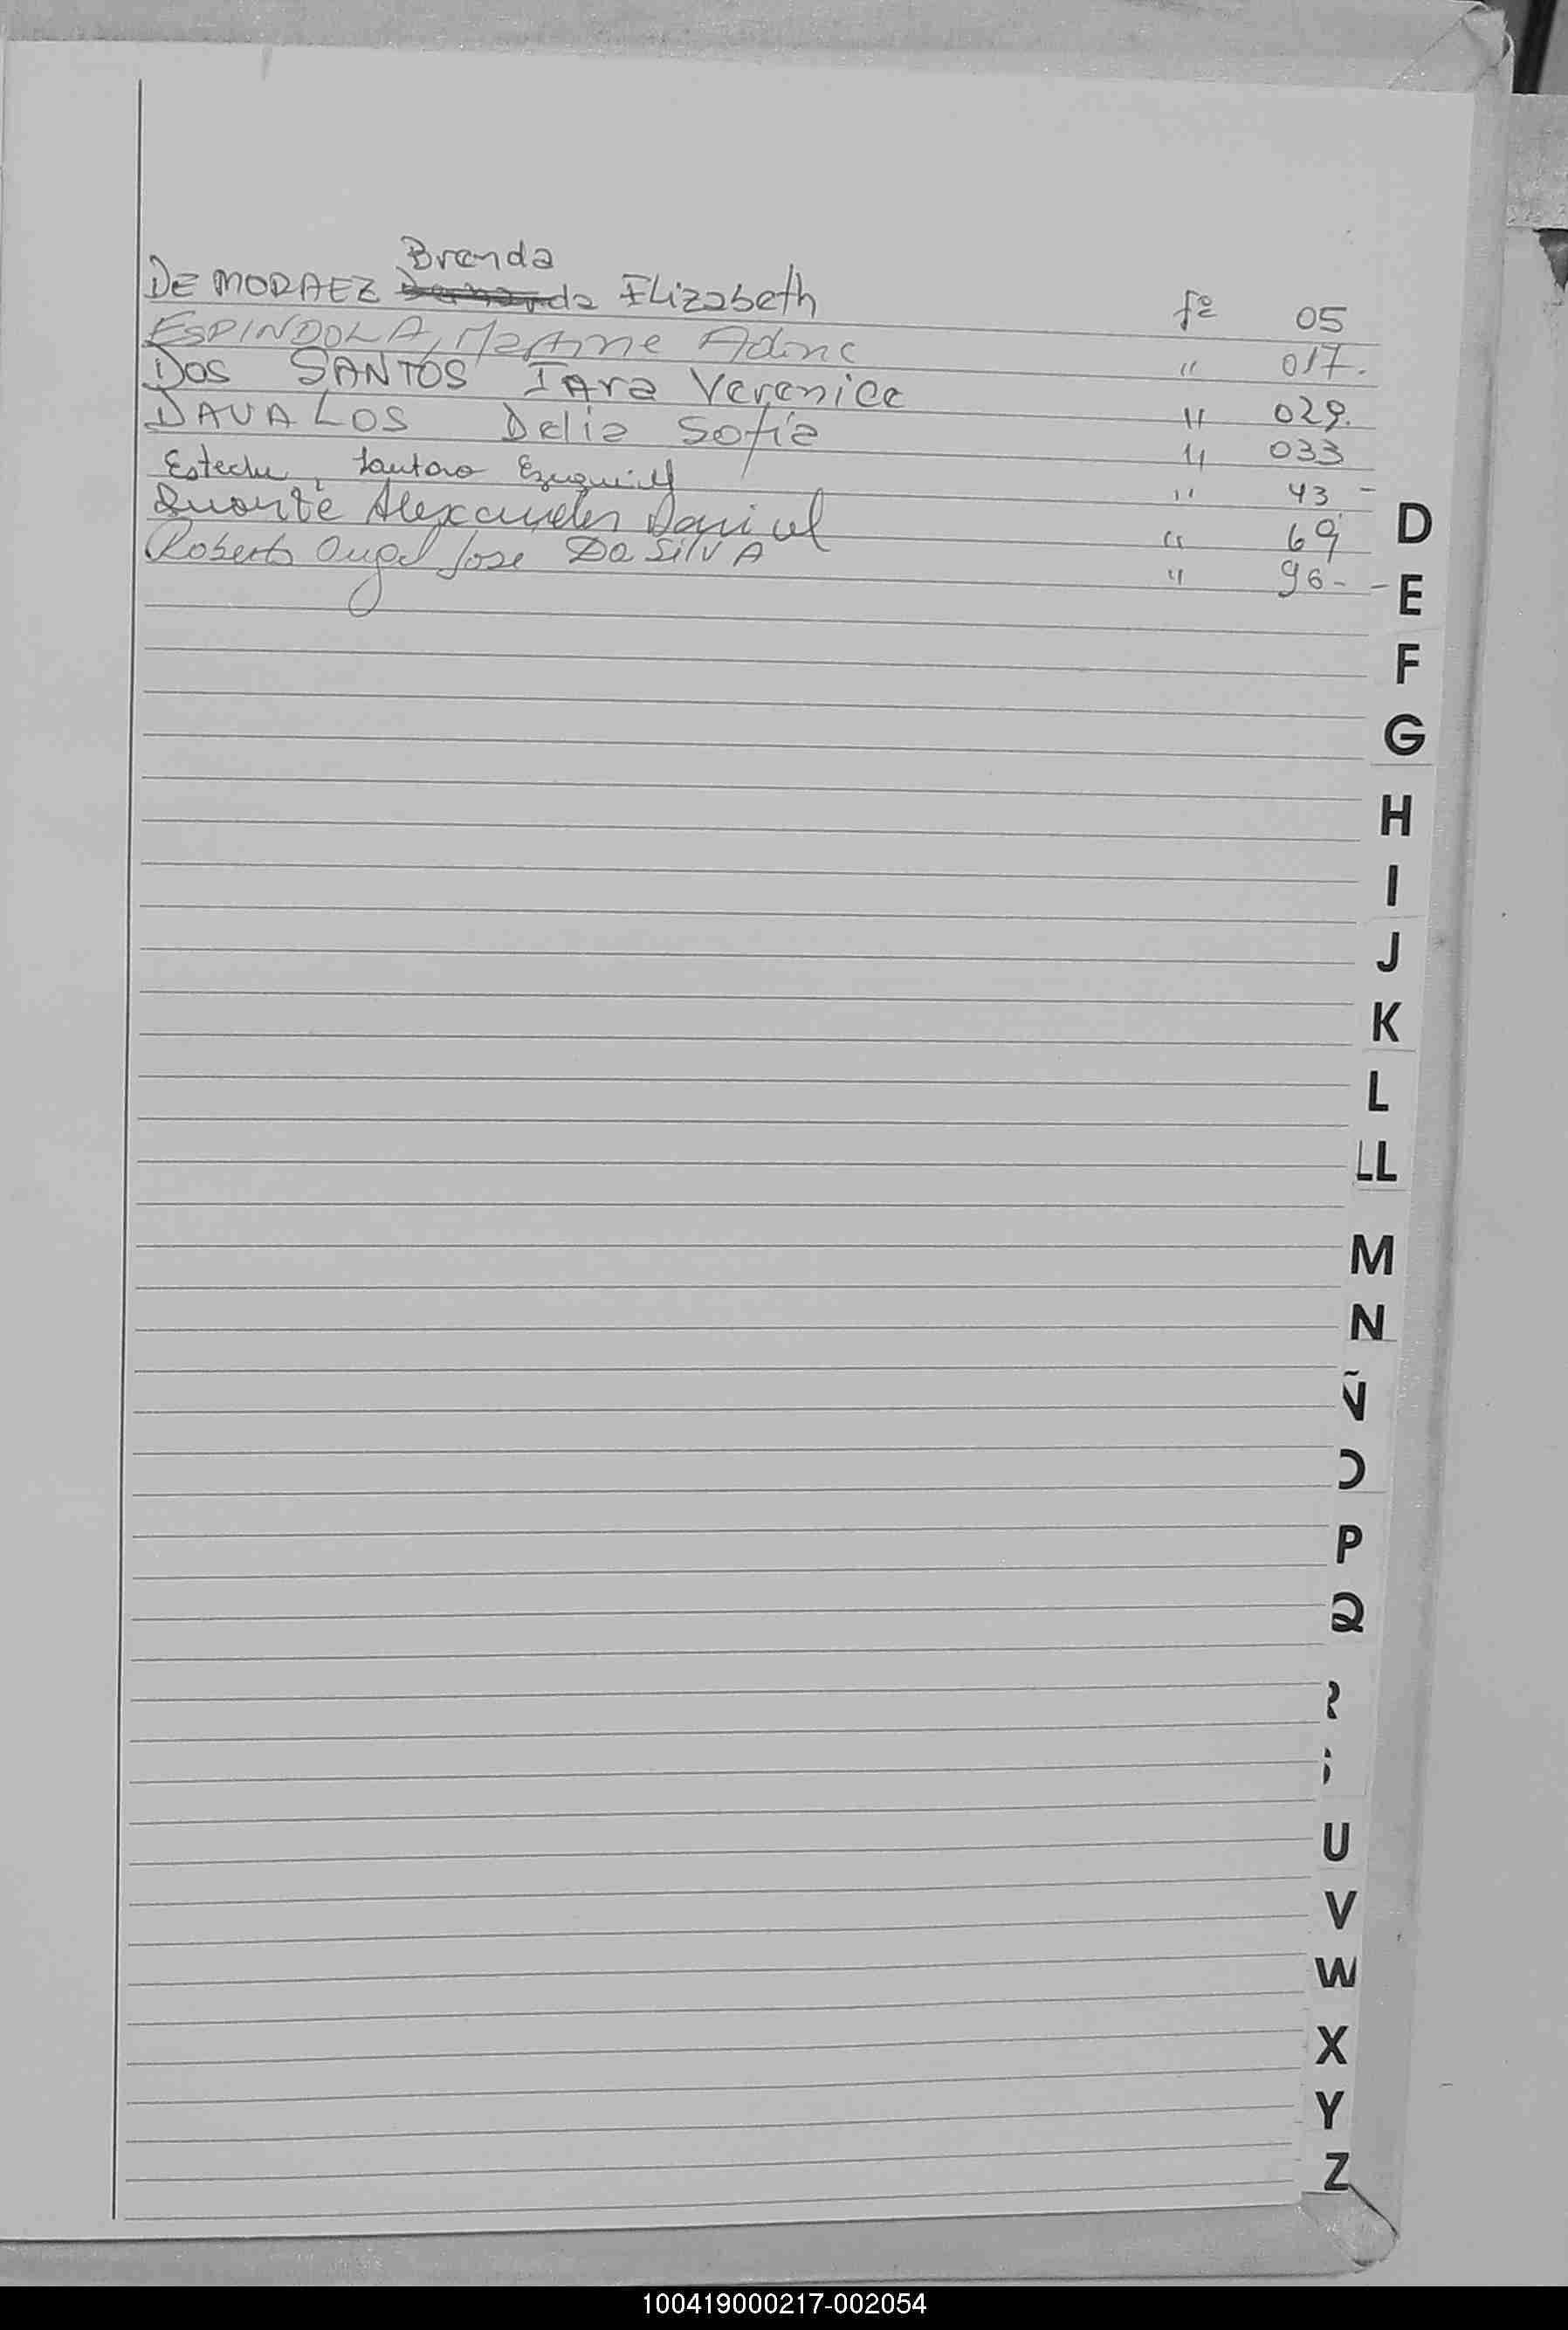 Brenda
DE MORAEZ Elizabeth fº 05
ESPINDOLA, " 017.
DOS SANTOS IAra Verenice " 029.
DAVALOS Delia Sofia " 033
Esteche, Lautaro Ezequiel " 43 -
Duarte Alexander Daniel " 69
Roberto Angel Jose Da SilvA " 96 -
D
E
F
G
H
I
J
K
L
LL
M
N
Ñ
O
P
Q
R
S
U
V
W
X
Y
Z
100419000217-002054